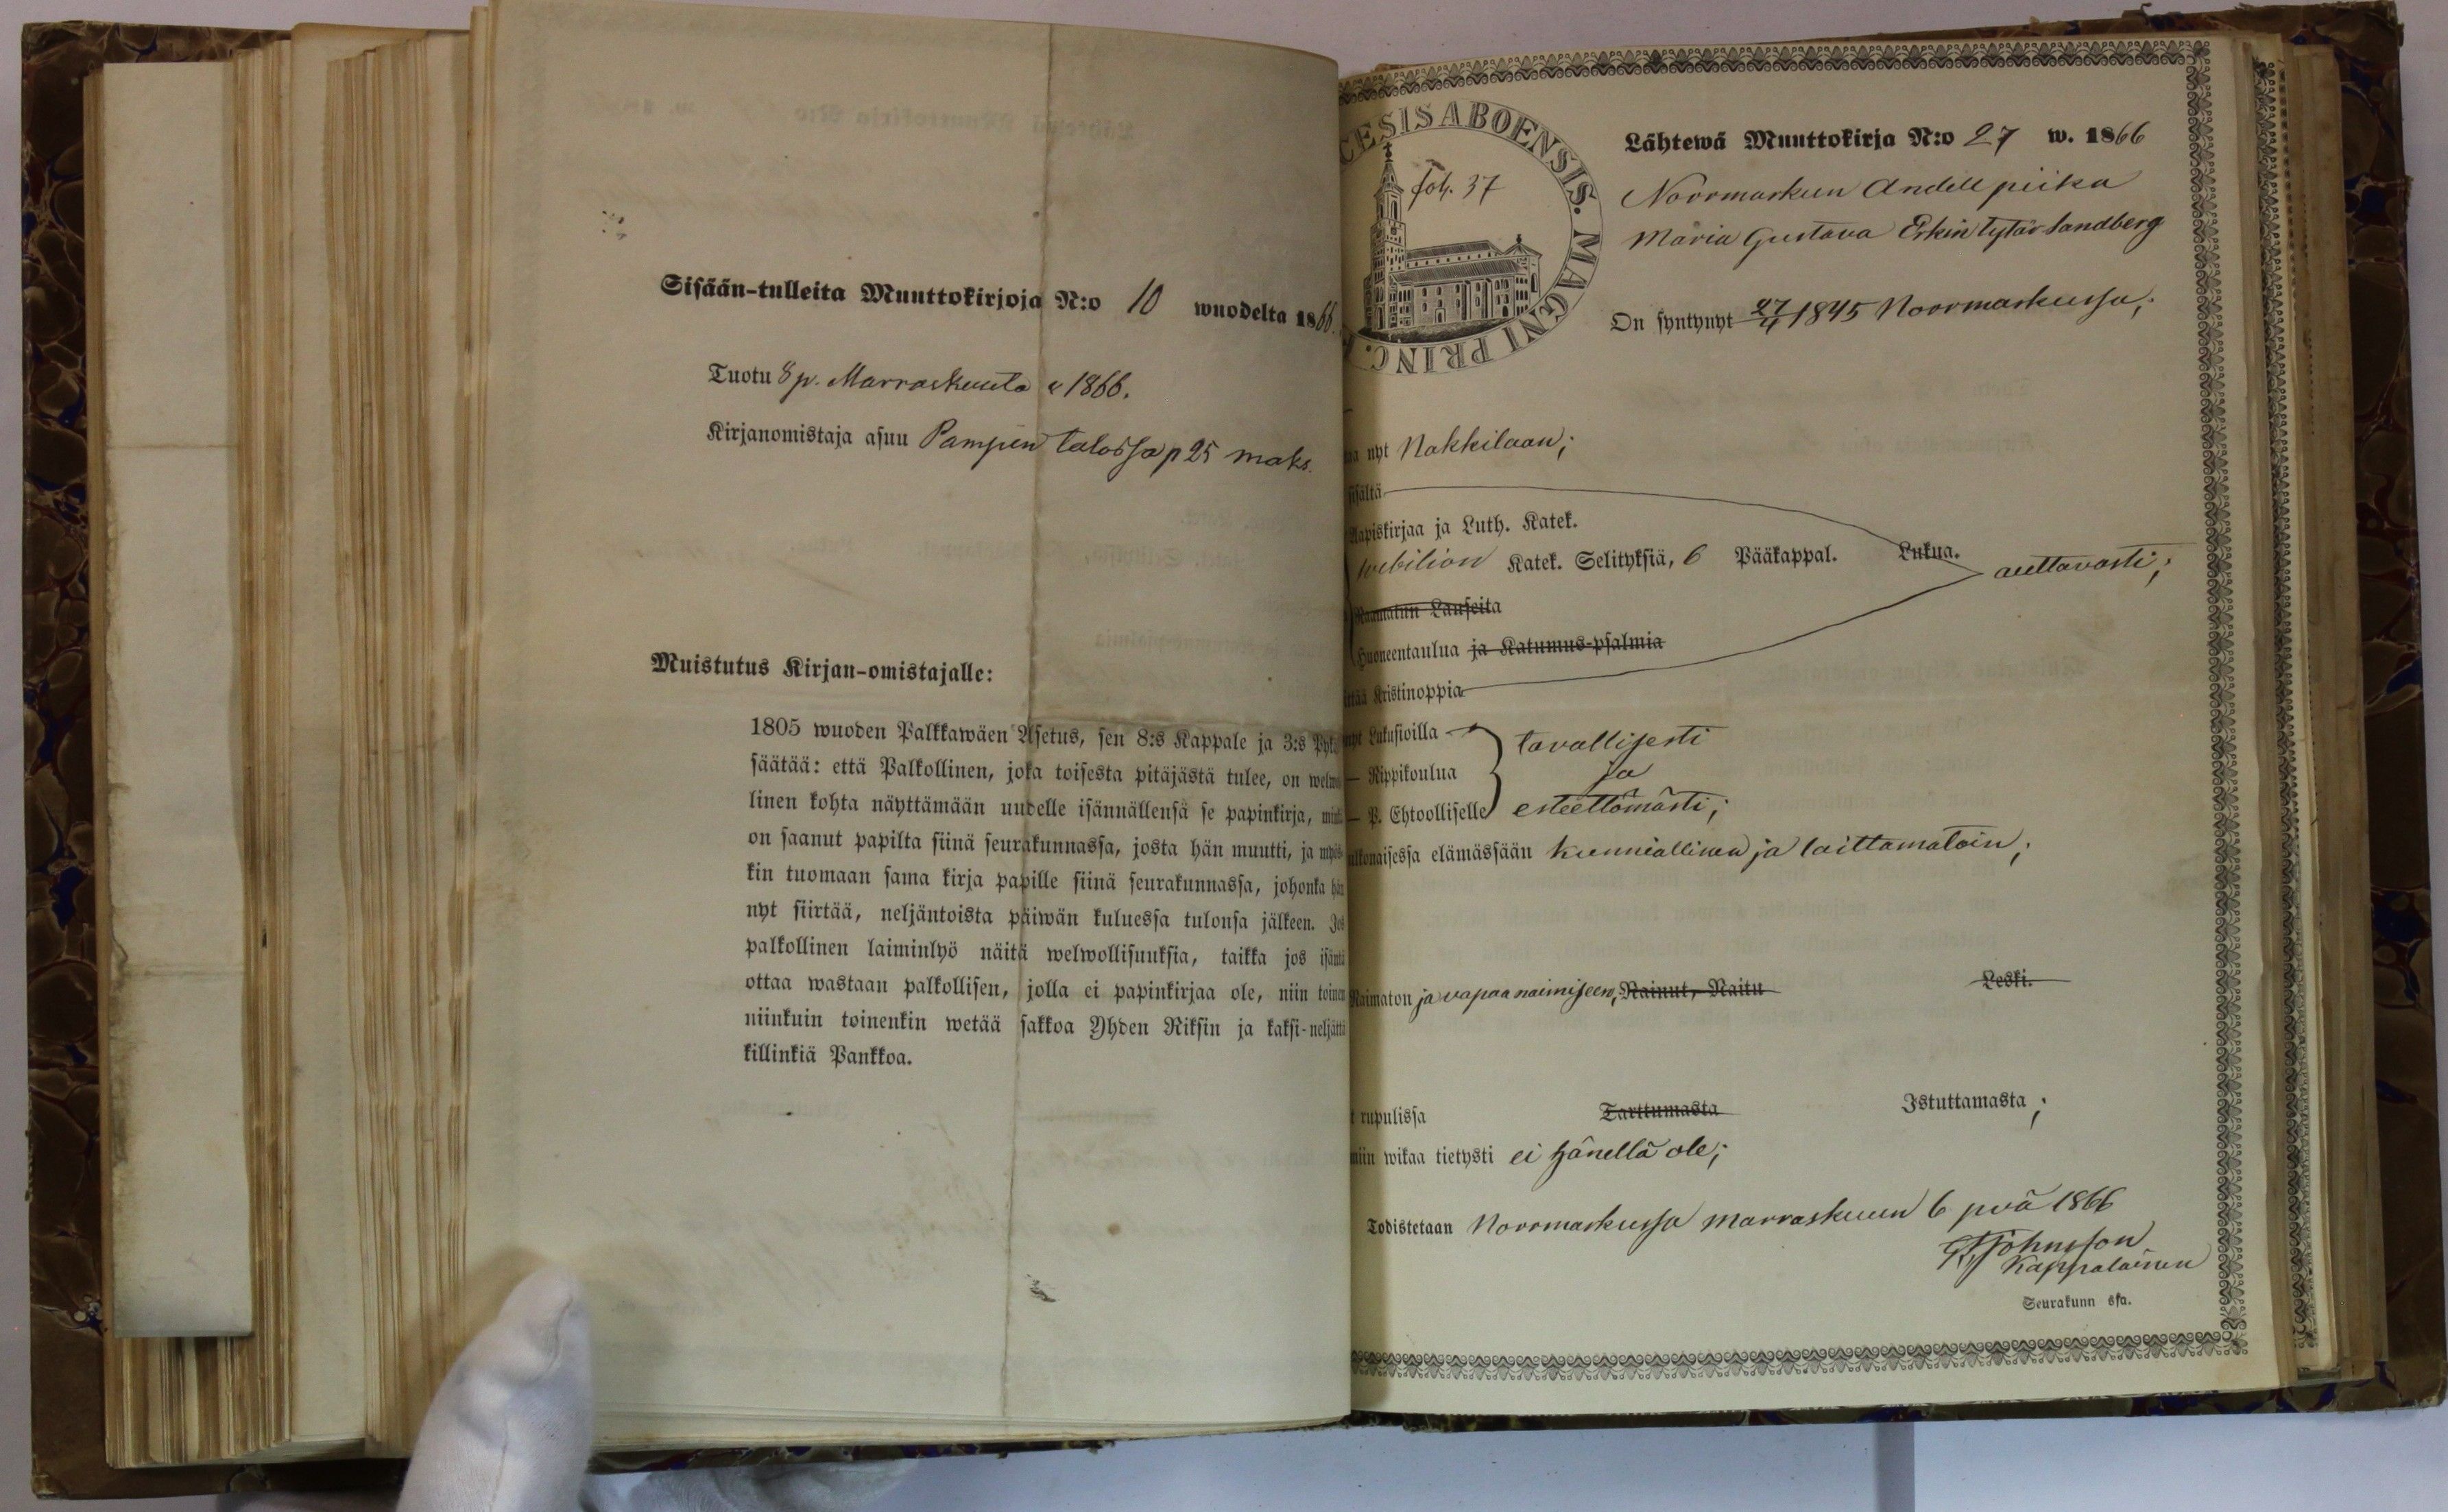 Sisään-tulleita Muuttokirjoja N:o 10 wuodelta 1866.
Tuotu 8 p. Marraskuuta 1866.
Kirjanomistaja asuu Pampin talossa p 25 maks.
Muistutus Kirjan-omistajalle:
1805 wuoden Palkkawäen Asetus, sen 8:s Kappale ja 3:s
säätää: että Palkollinen, joka toisesta pitäjästä tulee, on
linen kohta näyttämään uudelle isännällensä se papinkirja,
on saanut papilta siinä seurakunnassa, josta hän muutti, ja myös-
kin tuomaan sama kirja papille siinä seurakunnassa, johonka hän
nyt siirtää, neljäntoista päiwän kuluessa tulonsa jälkeen. Jos
palkollinen laiminlyö näitä welwollisuuksia, taikka jos isäntä
ottaa wastaan palkollisen, jolla ei papinkirjaa ole, niin toinen
niinkuin toinenkin wetää sakkoa Yhden Riksin ja kaksi-neljättä
killinkiä Pankkoa.
CESIS ABOENSIS. MAGNI PRINC.
fol. 37
Lähtewä Muuttokirja N:o 27 w. 1866
Noormarkun Andill piika
Maria Gustava Erkin tytär Sandberg
On syntynyt 27/4 1845 Noormarkussa;
nyt Nakkilaan;
sisältä
Aapiskirjaa ja Luth. Katek.
Katek. Selityksiä, 6 Pääkappal. Lukua. auttavasti;
Raamatun Lauseita
Huoneentaulua ja Katumus-psalmia
Kristinoppia
Lukusioilla tavallisesti
— Rippikoulua ja
— P. Ehtoolliselle esteettömästi;
ulkonaisessa elämässään kunniallinen ja laittamatoin;
Naimaton ja vapaa naimiseen, Nainut, Naitu Leski.
rupulissa Tarttumasta Istuttamasta;
niin wikaa tietysti ei hänellä ole;
Todistetaan Noormarkussa marraskuun 6 pvä 1866
Johnsson
Kappalainen
Seurakunn ssa.